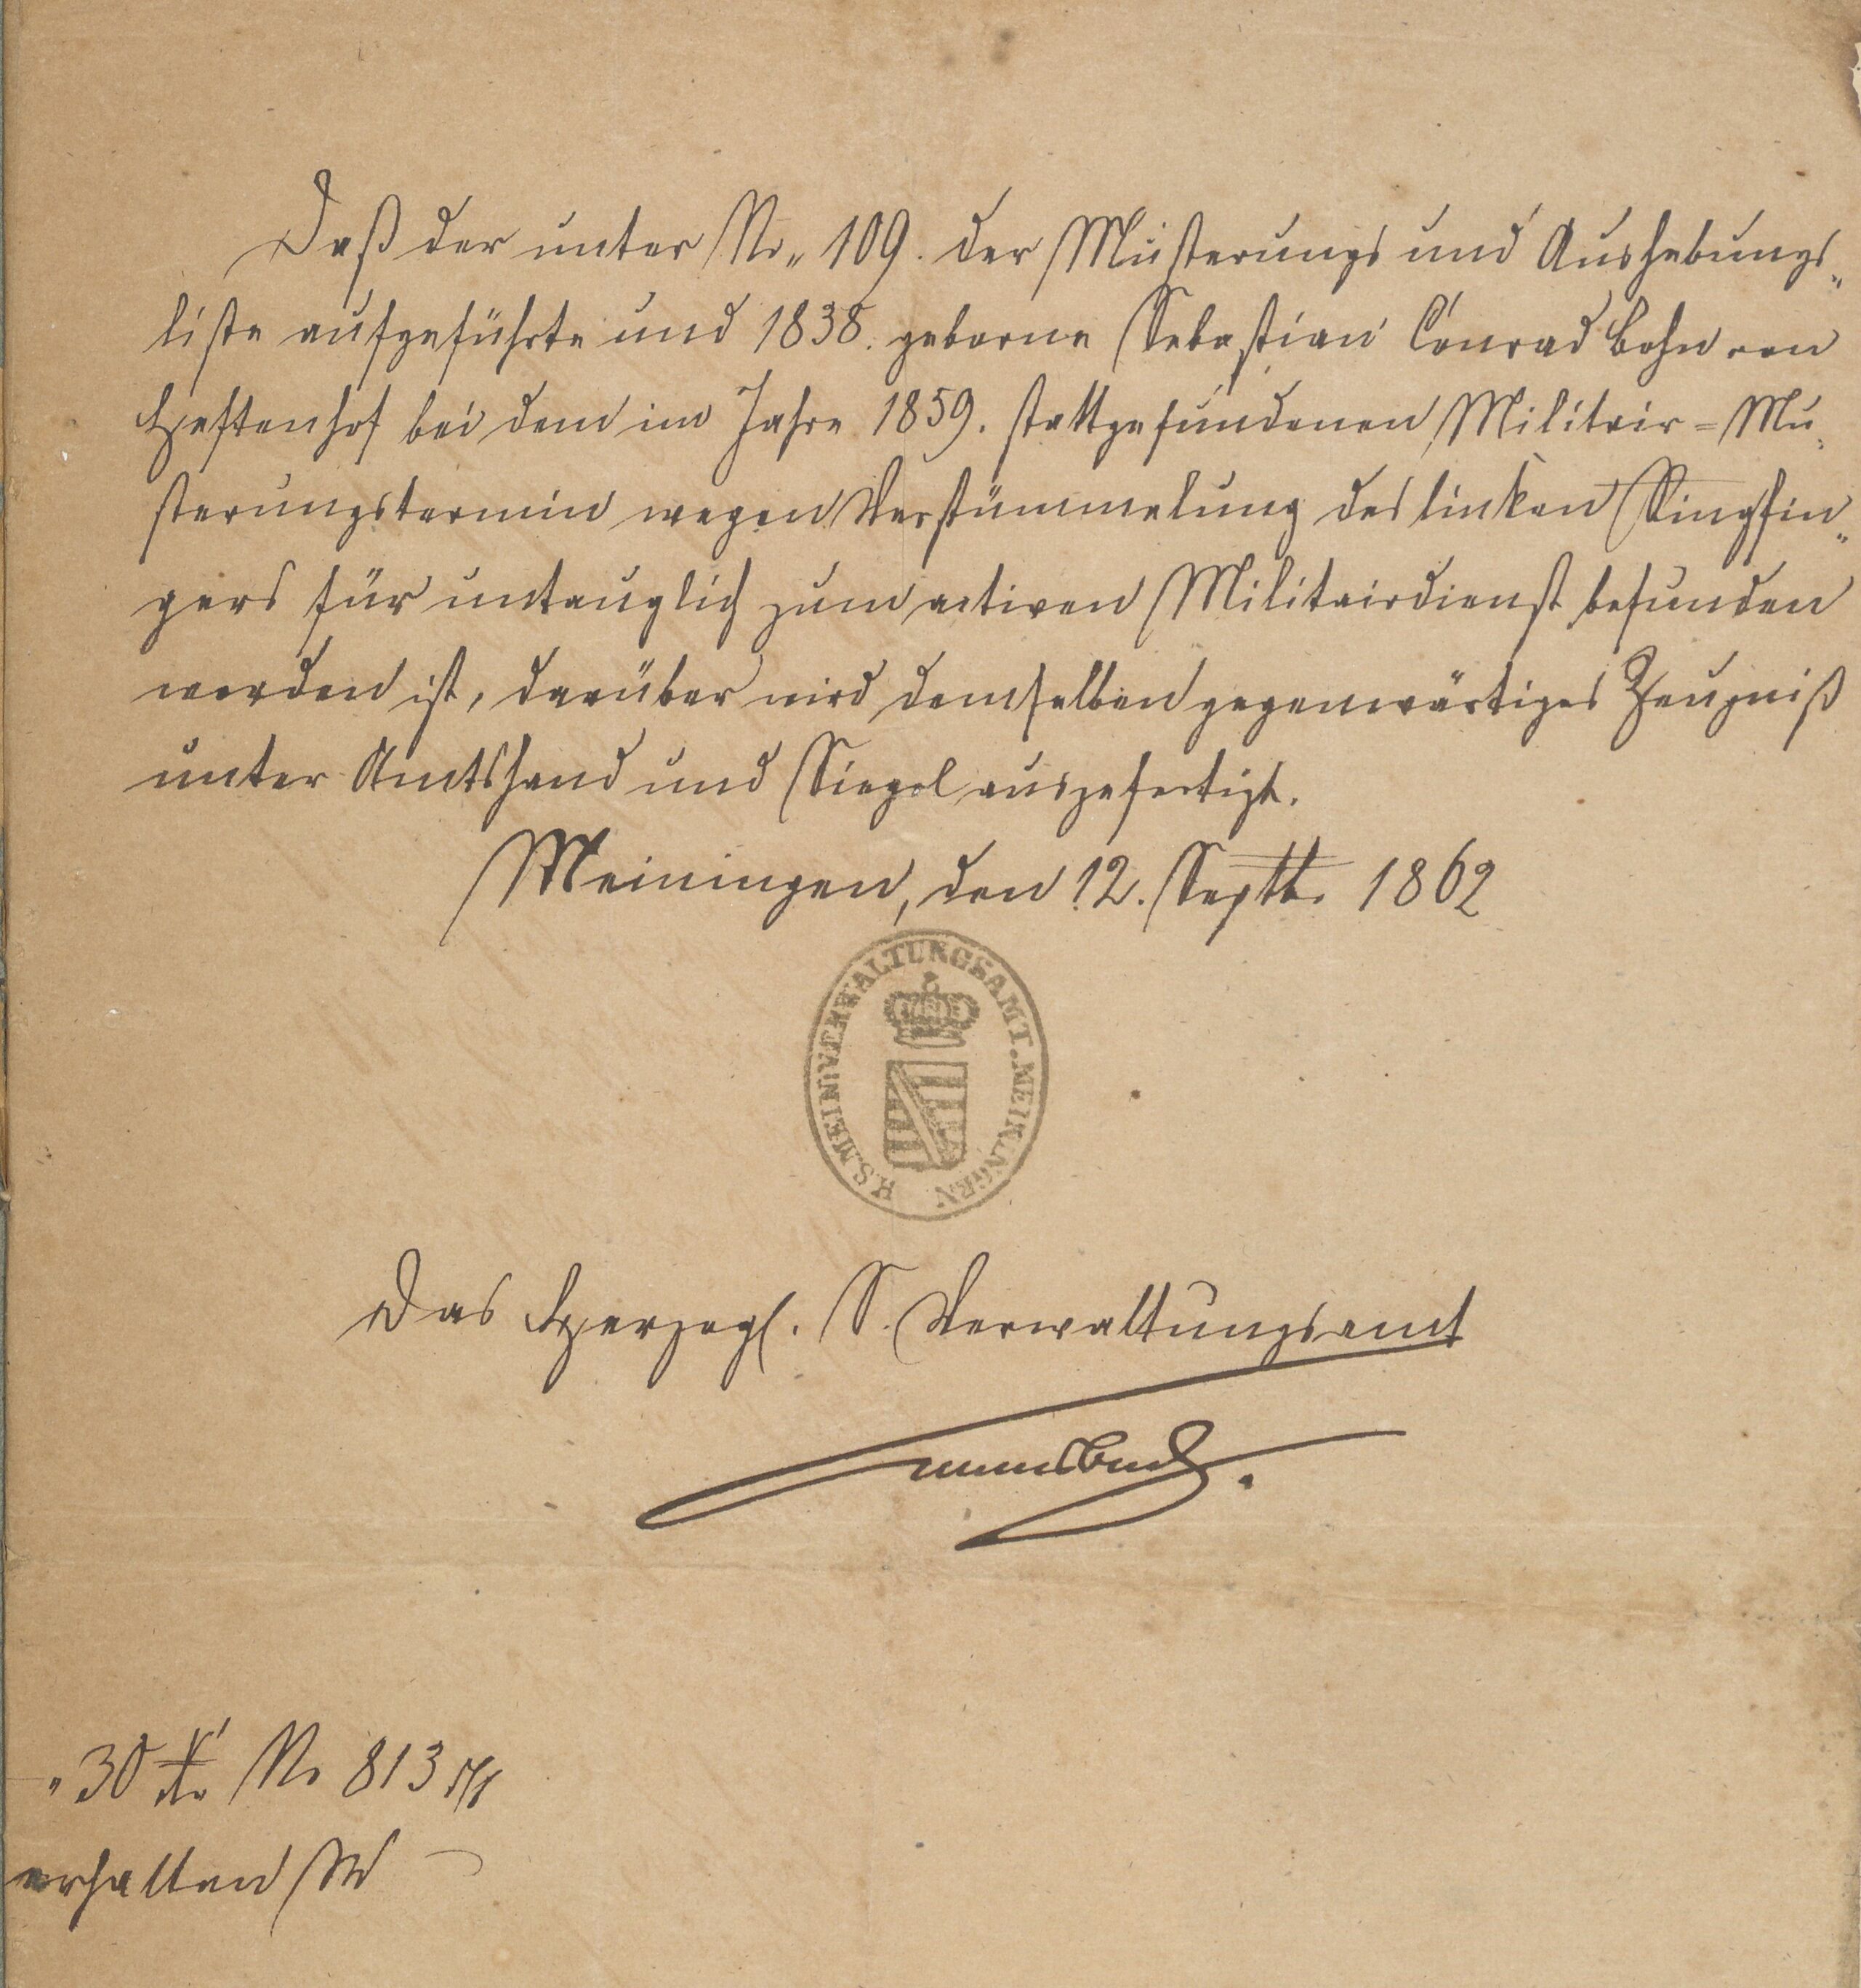 Daß der unter No. 109. der Musterungs und Aushebungs-
liste aufgeführte und 1838. geborne Sebastian Conrad Bohn von
Heftenhof bei dem im Jahre 1859. stattgefundenen Militair=Mu-
sterungstermin wegen Verstümmelung des linken Ringfin-
gers für untauglich zum activen Militairdienst befunden
worden ist, darüber wird demselben gegenwärtiges Zeugniß
unter Amtshand und Siegel ausgefertigt.
Meiningen, den 12. Septb. 1862
H.S.MEIN.VERWALTUNGSAMT.MEININGEN
Das Herzogl. S. Verwaltungsamt
30 No 813
erhalten